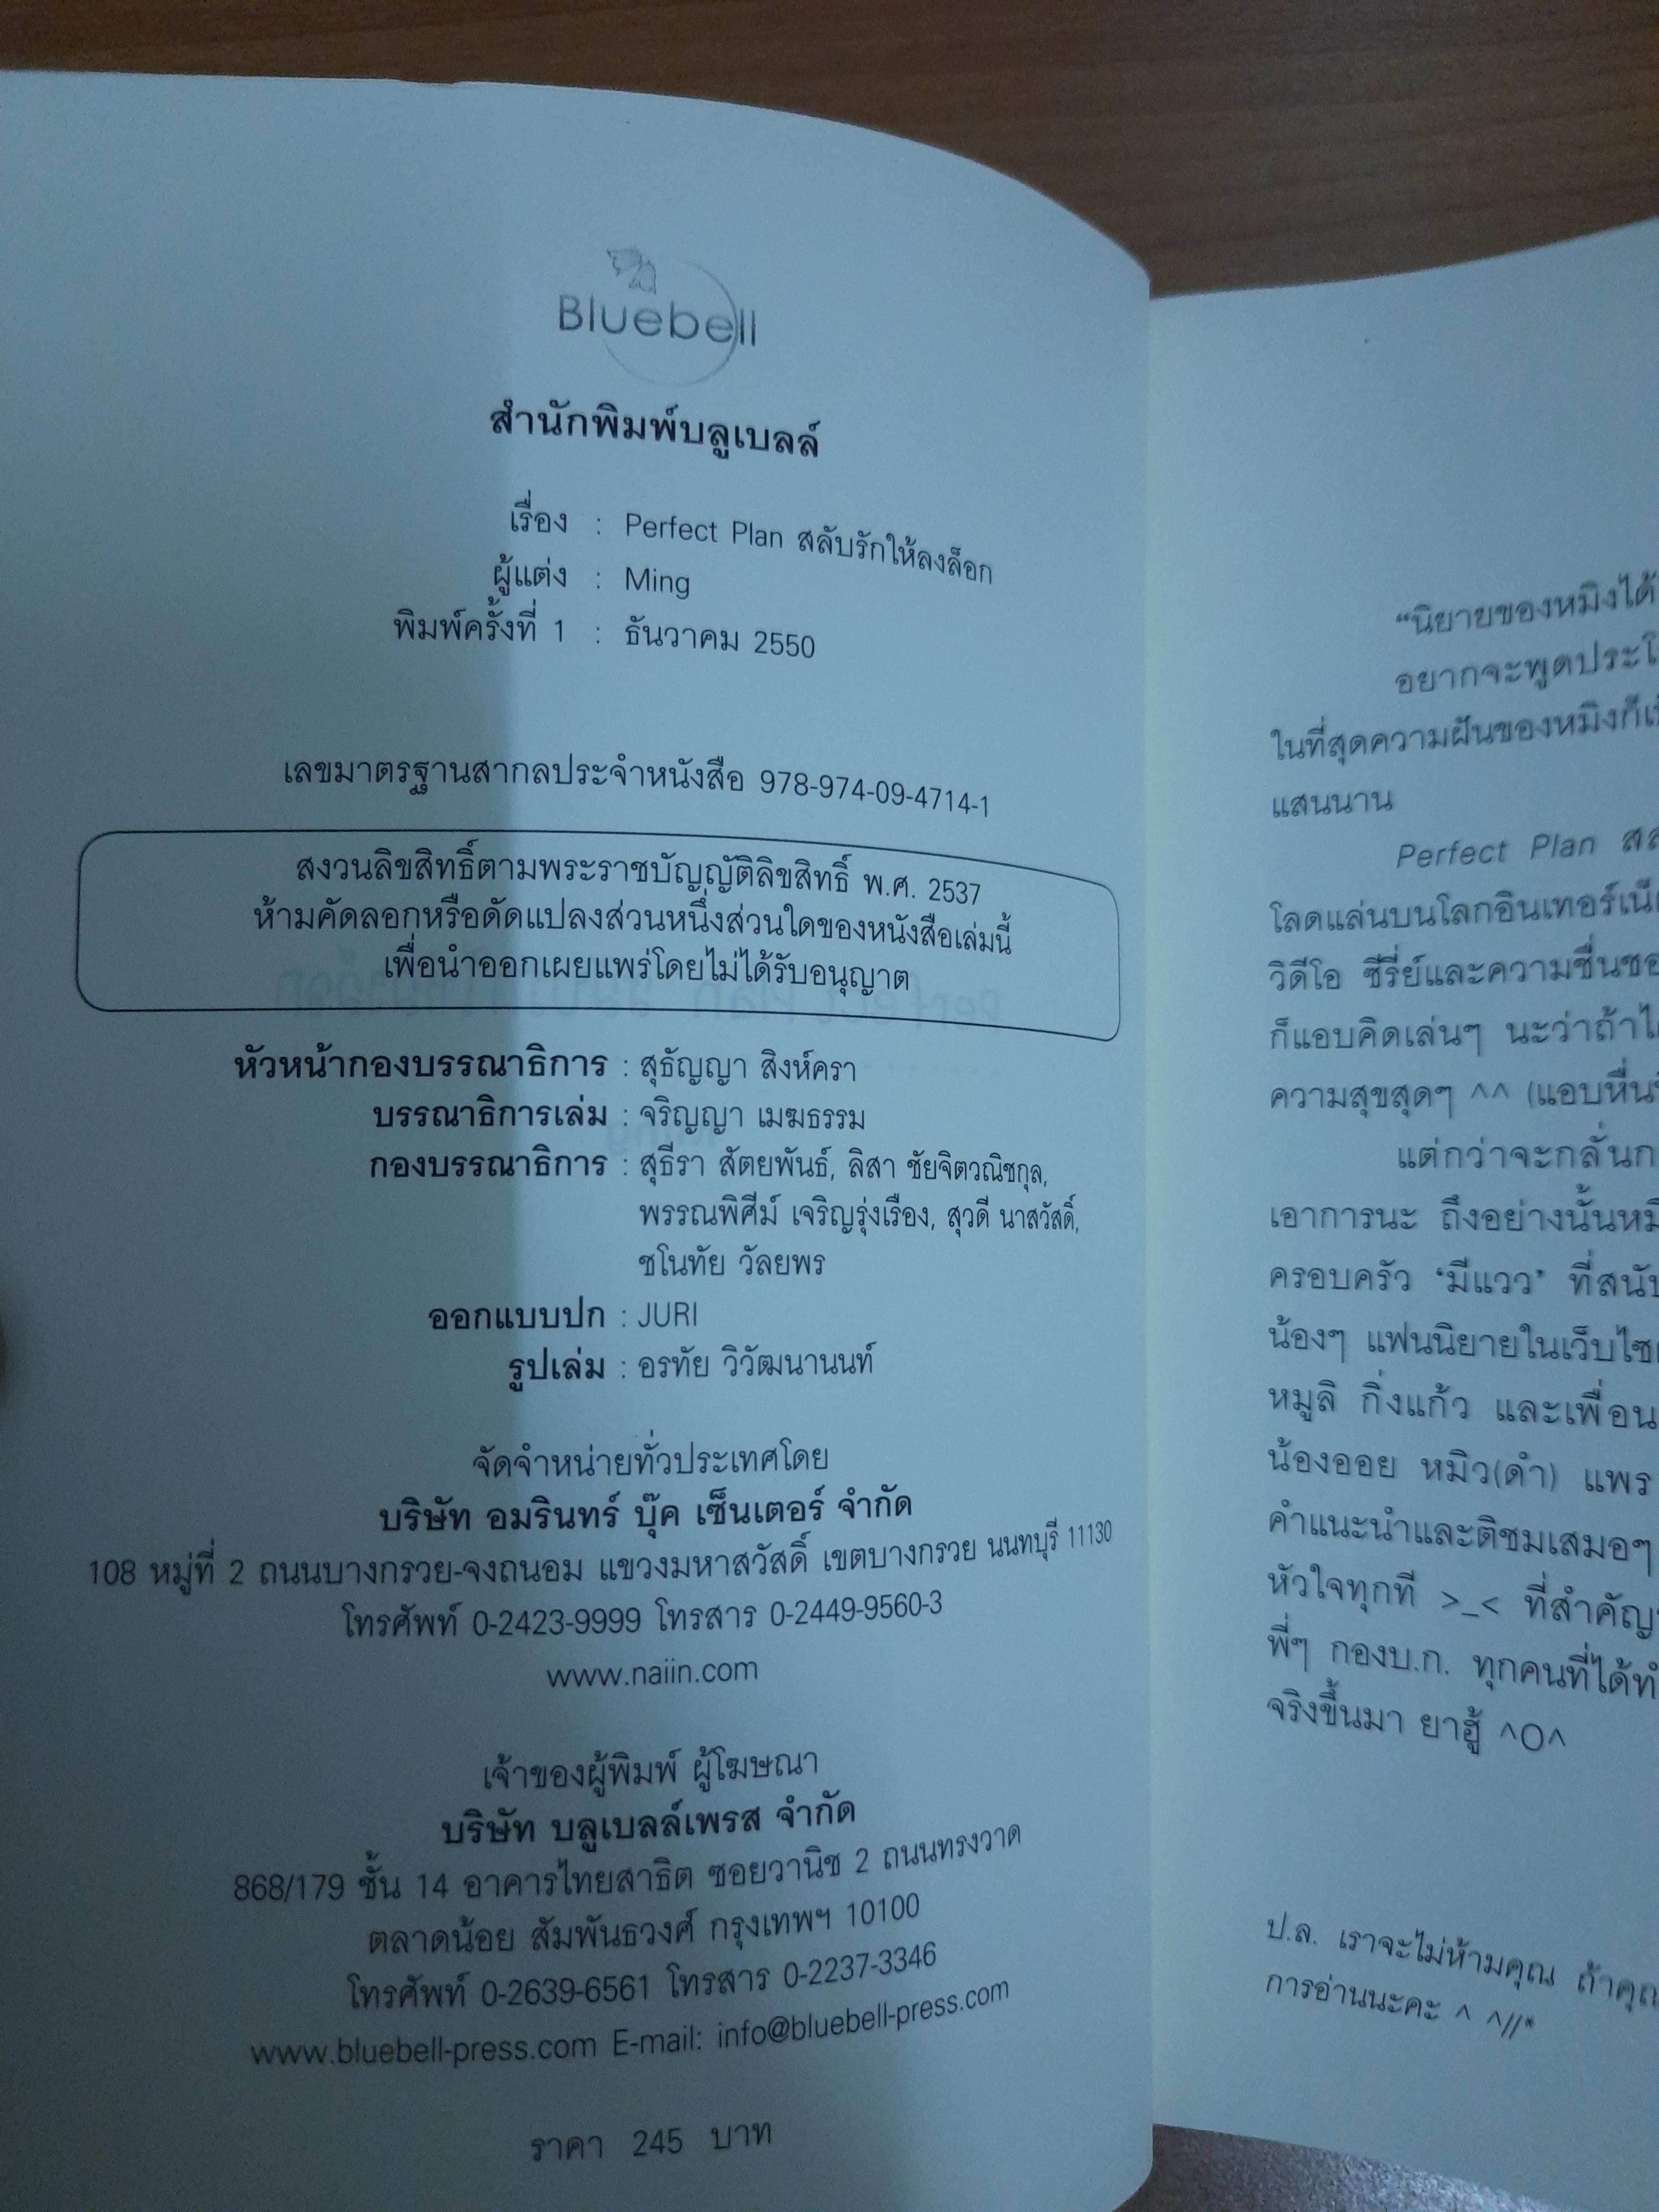 Bluebell
สำนักพิมพ์บลูเบลล์
เรื่อง : Perfect Plan สลับรักให้ลงล็อก
ผู้แต่ง : Ming
พิมพ์ครั้งที่ 1 : ธันวาคม 2550
เลขมาตรฐานสากลประจำหนังสือ 978-974-09-4714-1
สงวนลิขสิทธิ์ตามพระราชบัญญัติลิขสิทธิ์ พ.ศ. 2537
ห้ามคัดลอกหรือดัดแปลงส่วนหนึ่งส่วนใดของหนังสือเล่มนี้
เพื่อนำออกเผยแพร่โดยไม่ได้รับอนุญาต
หัวหน้ากองบรรณาธิการ : สุธัญญา สิงห์ครา
บรรณาธิการเล่ม : จริญญา เมฆธรรม
กองบรรณาธิการ : สุธีรา สัตยพันธ์, ลิสา ชัยจิตวณิชกุล,
พรรณพิศีม์ เจริญรุ่งเรือง, สุวดี นาสวัสดิ์,
ชโนทัย วัลยพร
ออกแบบปก : JURI
รูปเล่ม : อรทัย วิวัฒนานนท์
จัดจำหน่ายทั่วประเทศโดย
บริษัท อมรินทร์ บุ๊ค เซ็นเตอร์ จำกัด
108 หมู่ที่ 2 ถนนบางกรวย-จงถนอม แขวงมหาสวัสดิ์ เขตบางกรวย นนทบุรี 11130
โทรศัพท์ 0-2423-9999 โทรสาร 0-2449-9560-3
www.naiin.com
เจ้าของผู้พิมพ์ ผู้โฆษณา
บริษัท บลูเบลล์เพรส จำกัด
868/179 ชั้น 14 อาคารไทยสาธิต ซอยวานิช 2 ถนนทรงวาด
ตลาดน้อย สัมพันธวงศ์ กรุงเทพฯ 10100
โทรศัพท์ 0-2639-6561 โทรสาร 0-2237-3346
www.bluebell-press.com E-mail: info@bluebell-press.com
ราคา 245 บาท
“นิยายของหมิงได้
อยากจะพูดประโ
ในที่สุดความฝันของหมิงก็
แสนนาน
Perfect Plan
โลดแล่นบนโลกอินเทอร์เน็
วิดีโอ ซีรี่ย์และความชื่นช
ก็แอบคิดเล่นๆ นะว่าถ้า
ความสุขสุดๆ ^^ (แอบหื่น
แต่กว่าจะกลั่น
เอาการนะ ถึงอย่างนั้น
ครอบครัว “มีแวว” ที่
น้องๆ แฟนนิยายในเว็บไซ
หมูลิ กิ่งแก้ว และเพื่อน
น้องออย หมิว(ดำ) แพร
คำแนะนำและติชมเสมอๆ
หัวใจทุกที >_< ที่สำคัญ
พี่ๆ กองบ.ก. ทุกคนที่ได้
จริงขึ้นมา ยาฮู้ ^O^
ป.ล. เราจะไม่ห้ามคุณ ถ้าคุณ
การอ่านนะคะ ^ ^//*